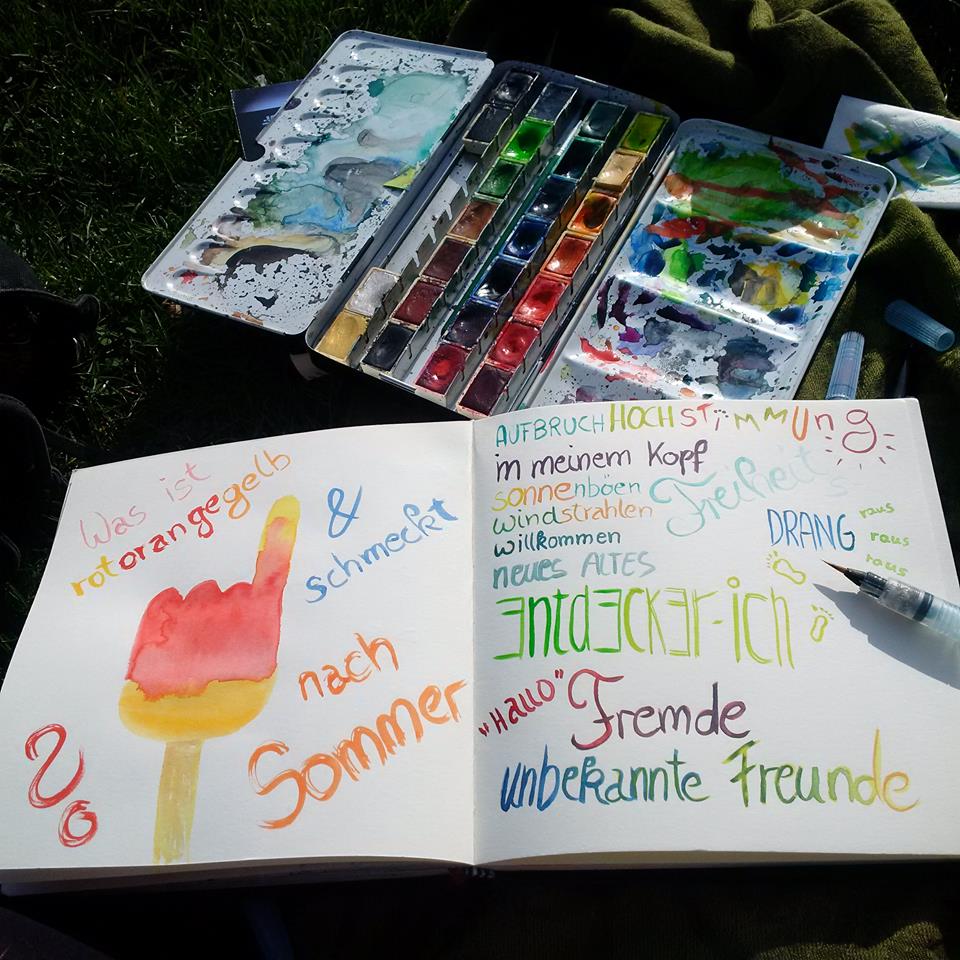 Was ist
rotorangegelb
&
schmeckt
nach
Sommer
?
AUFBRUCHHOCHSTiMMUng
in meinem Kopf
sonnenböen
windstrahlen
willkommen
neues ALTES
Freiheits
DRANG
raus
raus
raus
EntdECKEr-ich
"HALLO" Fremde
unbekannte Freunde